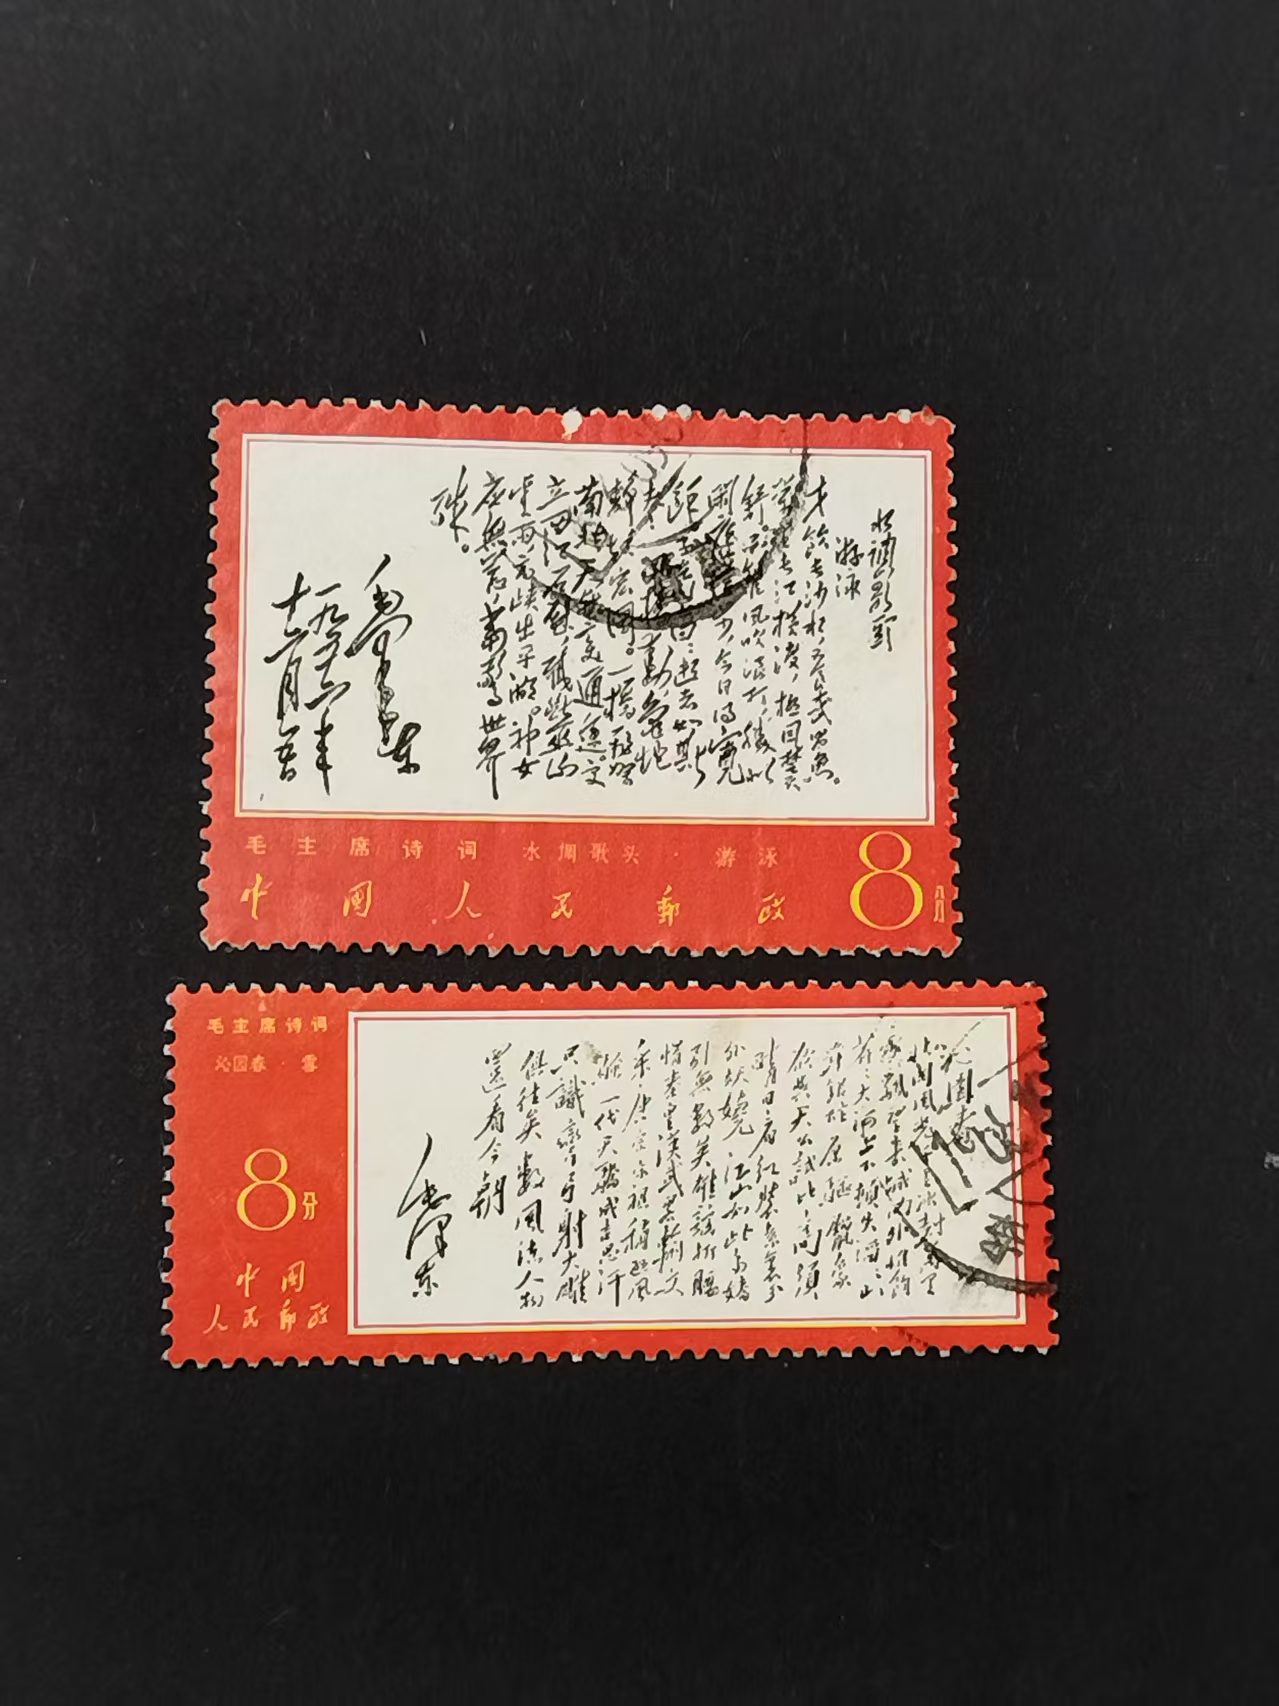 水调歌头
游泳
才饮长沙水，又食武昌鱼。
万里长江横渡，极目楚天
舒。不管风吹浪打，胜似
闲庭信步，今日得宽
馀。子在川上曰：逝者如斯
夫！风樯动，龟蛇
静，起宏图。一桥飞架
南北，天堑变通途。更
立西江石壁，截断巫山
云雨，高峡出平湖。神女
应无恙，当惊世界
殊。
毛泽东
一九五六年
十二月五日
毛主席诗词 水调歌头·游泳
中国人民邮政
8分
毛主席诗词
沁园春·雪
8分
中国
人民邮政
沁园春
北国风光千里冰封万里
雪飘望长城内外惟馀
莽莽大河上下顿失滔滔山
舞银蛇原驱腊象
欲与天公试比高须
晴日看红装素裹分
外妖娆 江山如此多娇
引无数英雄竞折腰
惜秦皇汉武略输文
采唐宗宋祖稍逊风
骚一代天骄成吉思汗
只识弯弓射大雕
俱往矣数风流人物
还看今朝
毛泽东